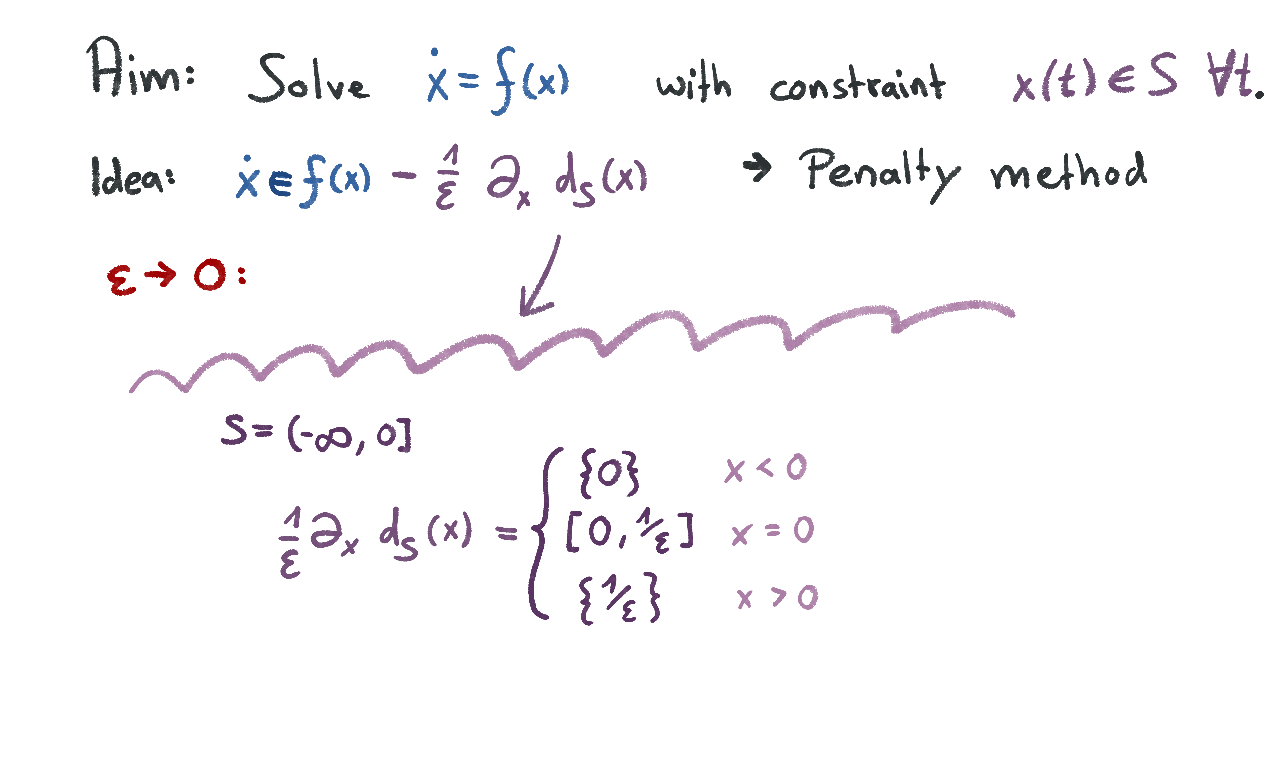 Aim: Solve ẋ = f(x) with constraint x(t) ∈ S ∀t.
Idea: ẋ ∈ f(x) - 1/ε ∂ₓ d_S(x) → Penalty method
ε → 0:
S = (-∞, 0]
1/ε ∂ₓ d_S(x) = {
{0} x < 0
[0, 1/ε] x = 0
{1/ε} x > 0